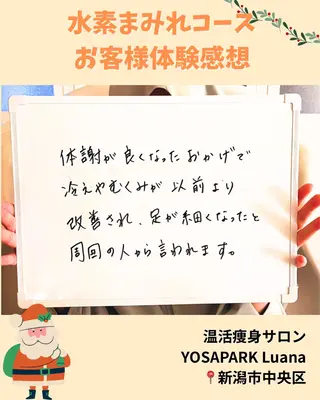 水素まみれコース
お客様体験感想
体謝が良くなったおかげで
冷えやむくみが以前より
改善され、足が細くなったと
周回の人から言われます。
温活痩身サロン
YOSAPARK Luana
📍新潟市中央区